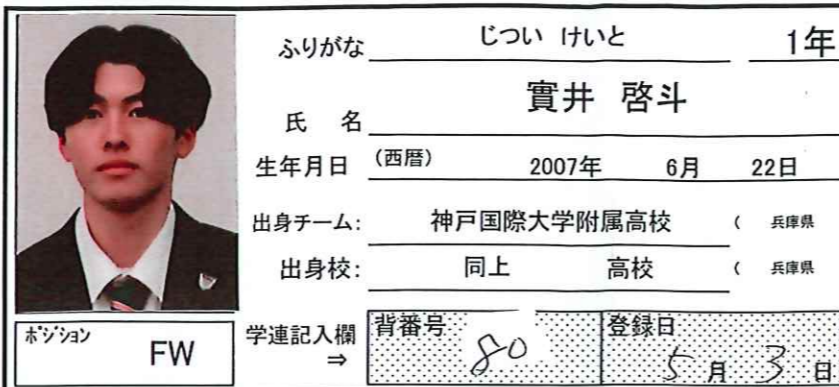 ふりがな じつい けいと 1年
氏 名 實井 啓斗
生年月日 (西暦) 2007年 6月 22日
出身チーム: 神戸国際大学附属高校 ( 兵庫県
出身校: 同上 高校 ( 兵庫県
ポジション FW
学連記入欄 ⇒
背番号 80
登録日 5 月 3 日